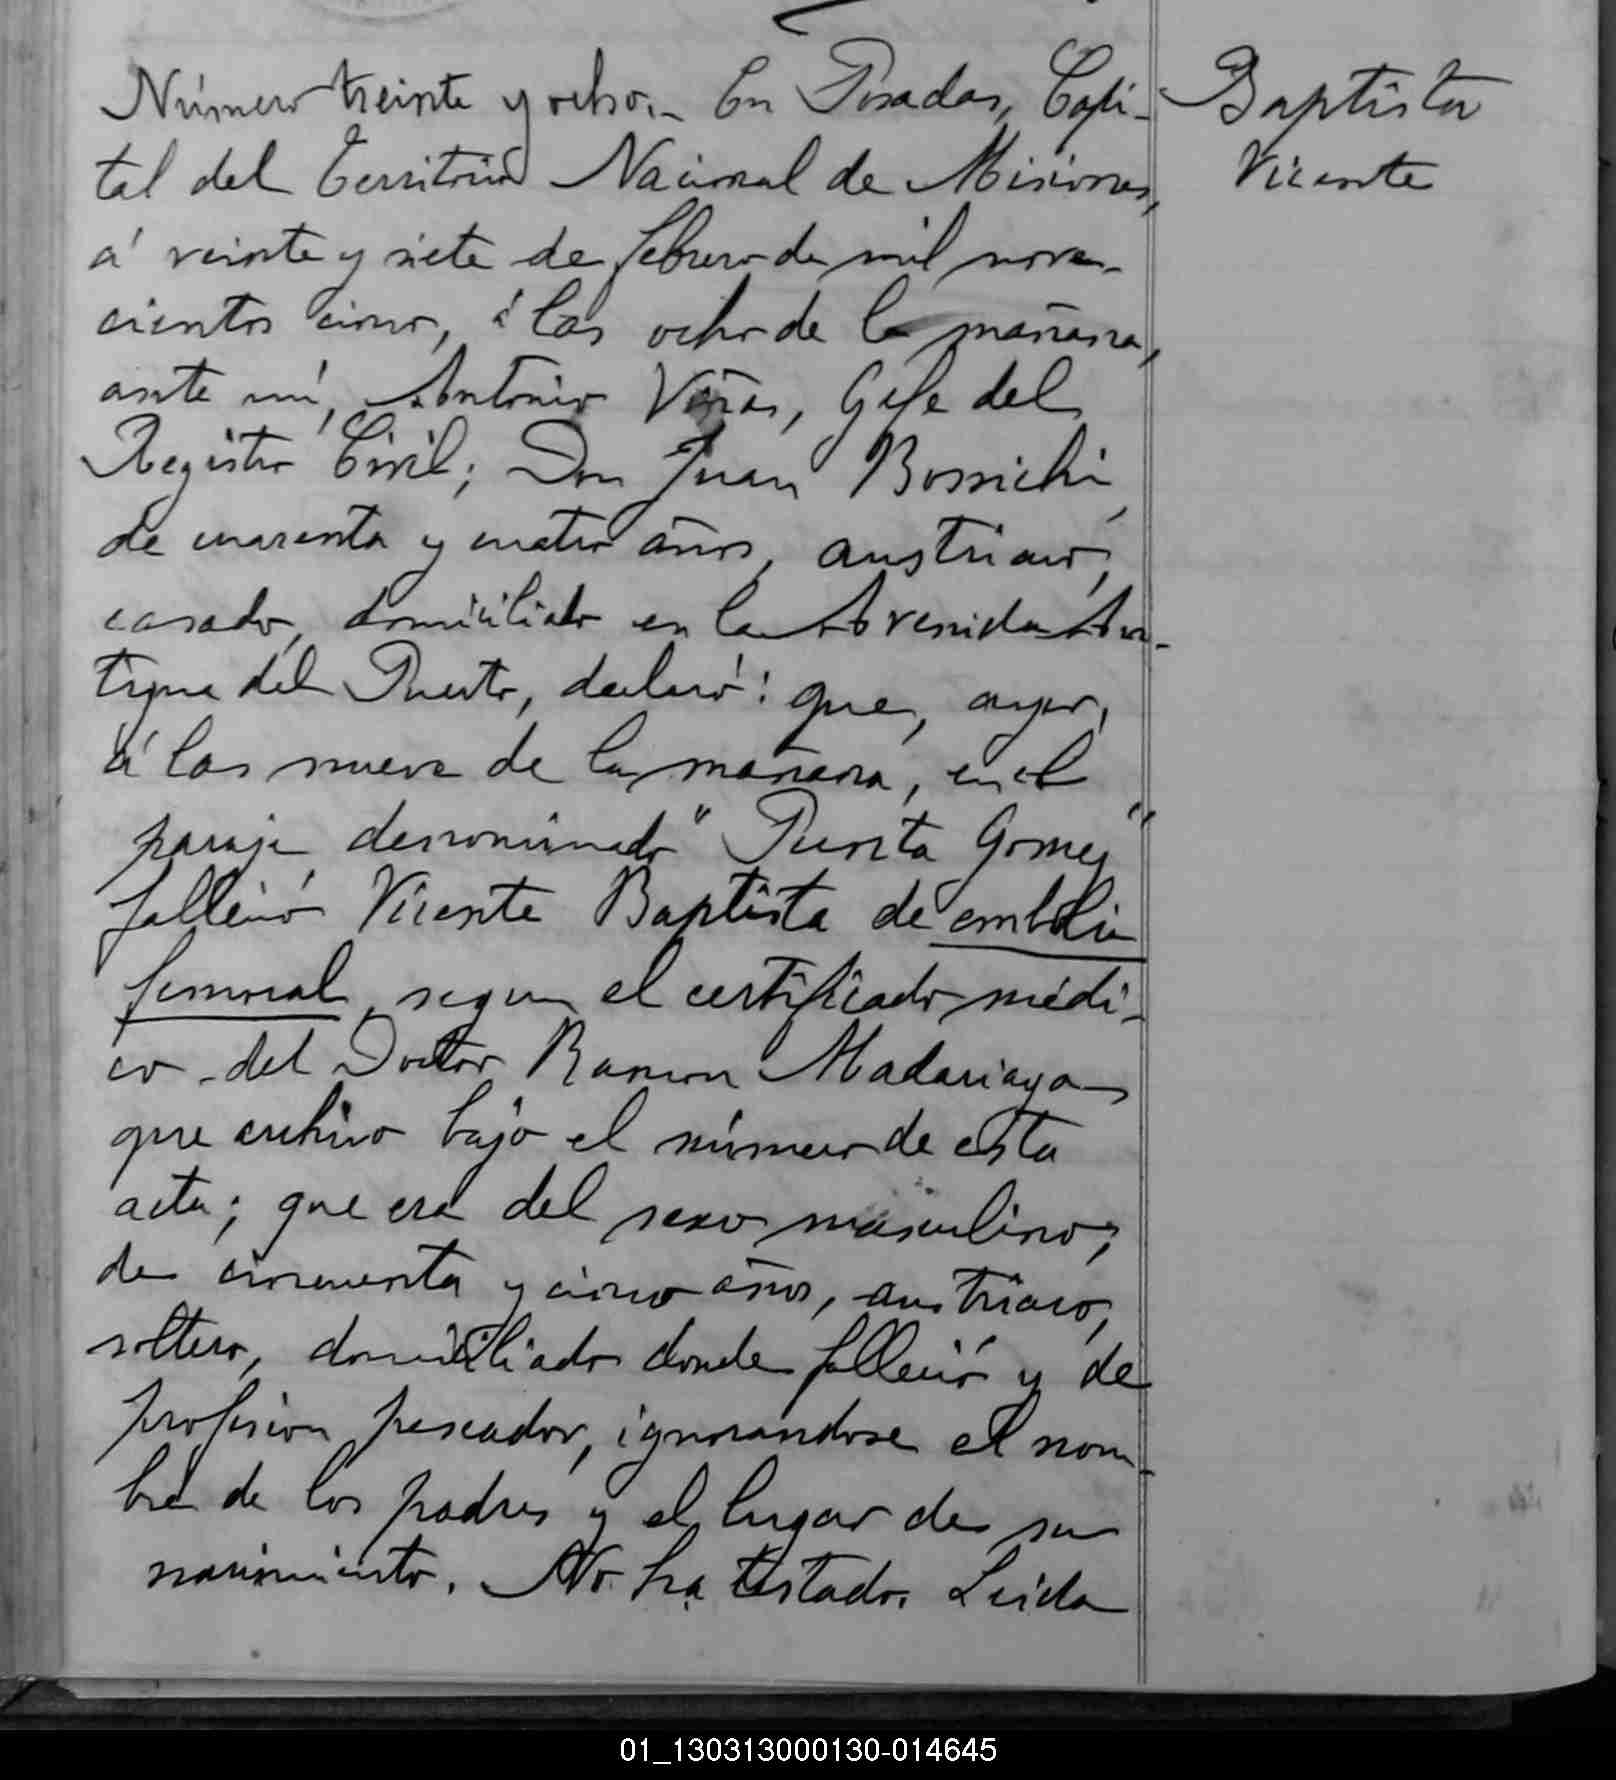 Número treinta y ocho.- En Posadas, Capi-
tal del Territorio Nacional de Misiones,
á veinte y siete de febrero de mil nove-
cientos cinco, á las ocho de la mañana,
ante mí, Antonio Viñas, Gefe del
Registro Civil; Don Juan
de cuarenta y cuatro años, austriaco,
casado, domiciliado en la Avenida An-
tigua del Puerto, declaró: que, ayer,
á las nueve de la mañana, en el
paraje denominado "Punta Gomez"
falleció Vicente Baptista de embolia
femoral, segun el certificado médi-
co del Doctor Ramon Madariaga
que archivo bajo el número de esta
acta; que era del sexo masculino;
de cincuenta y cinco años, austriaco,
soltero, domiciliado donde falleció y de
profesion pescador, ignorandose el nom-
bre de los padres y el lugar de su
nacimiento. No ha testado. Leida
Baptista
Vicente
01_130313000130-014645